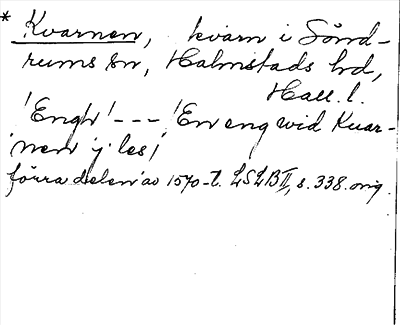 * Kvarnen, kvarn i Sönd-
rums sn, Halmstads hd,
Hall. l.
'Engh' --- 'En eng wid Kuar-
nen j les'
förra delen av 1570-t. LSLB II, s. 338. orig.